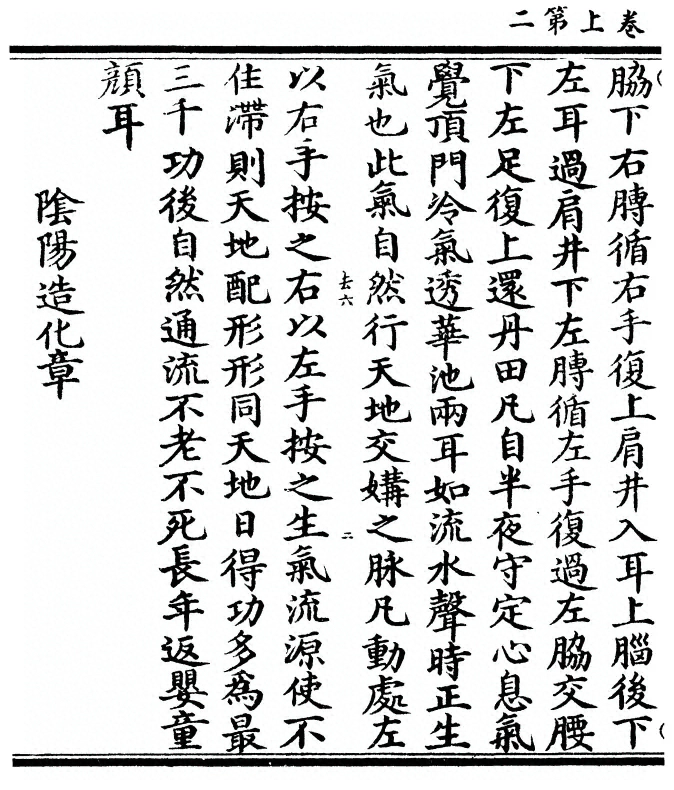 卷上第二
脇下右膞循右手復上肩井入耳上腦後下
左耳過肩井下左膞循左手復過左脇交腰
下左足復上還丹田凡自半夜守定心息氣
覺頂門冷氣透華池兩耳如流水聲時正生
氣也此氣自然行天地交媾之脉凡動處左
以右手按之右以左手按之生氣流源使不
住滯則天地配形形同天地日得功多爲最
三千功後自然通流不老不死長年返嬰童
顔耳
陰陽造化章
二